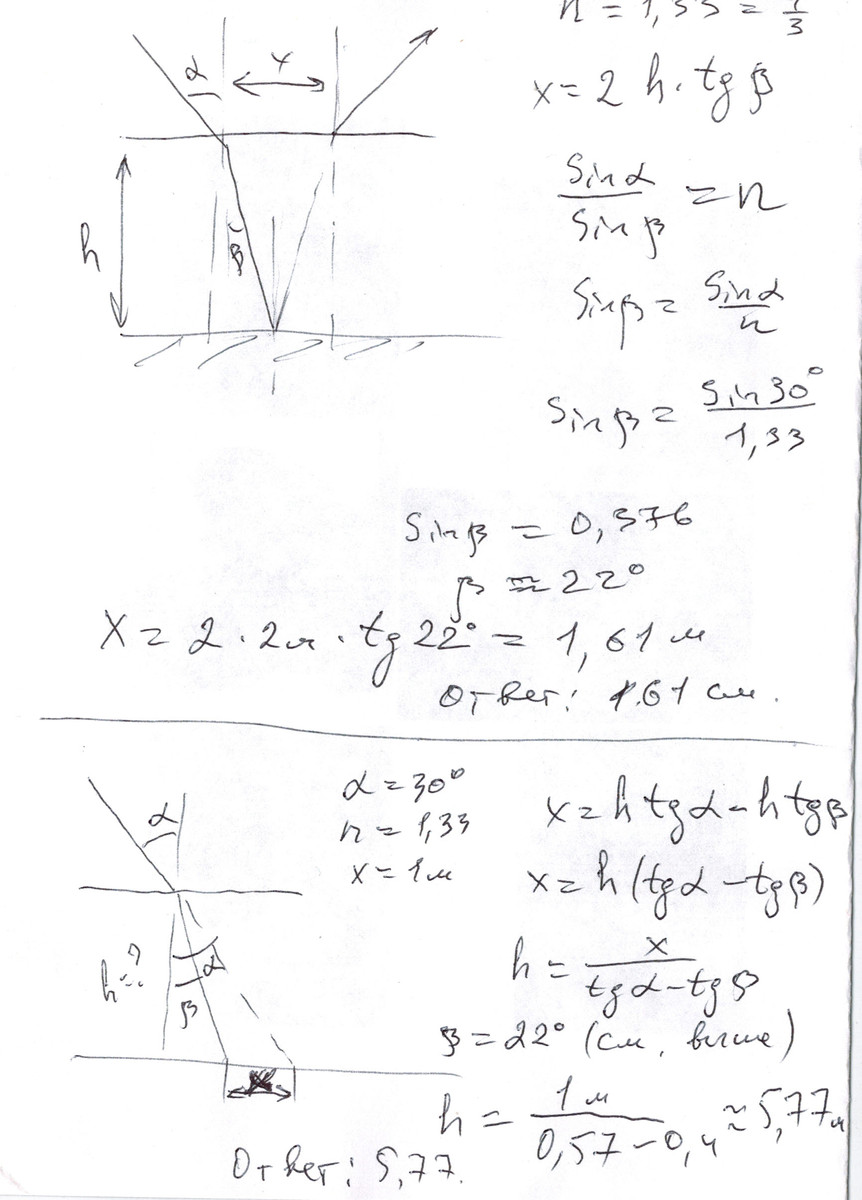 n = 1,33 = 4/3
x = 2 h · tg β
α
x
h
β
sinα / sinβ = n
sinβ = sinα / n
sinβ = sin30° / 1,33
sinβ = 0,376
β ≈ 22°
X = 2 · 2м · tg 22° = 1,61 м
Ответ: 1.61 см.
α
α = 30°
n = 1,33
x = 1м
x = h tgα - h tgβ
x = h (tgα - tgβ)
h = x / (tgα - tgβ)
h = ?
α
β
x
β = 22° (см. выше)
h = 1 м / (0,57 - 0,4) ≈ 5,77м
Ответ: 5,77.